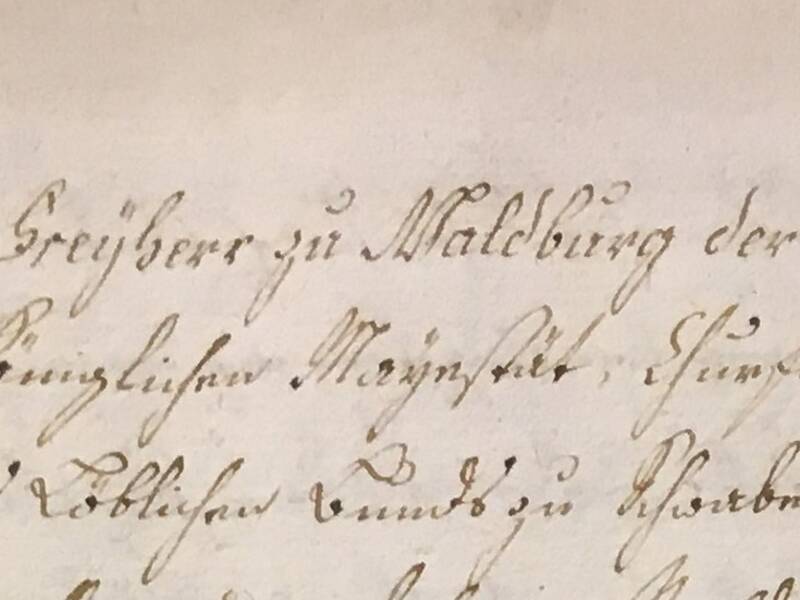 Freÿherr zu Waldburg der
Königlichen Mayestät, Churf
Löblichen Bunds zu Schwabe